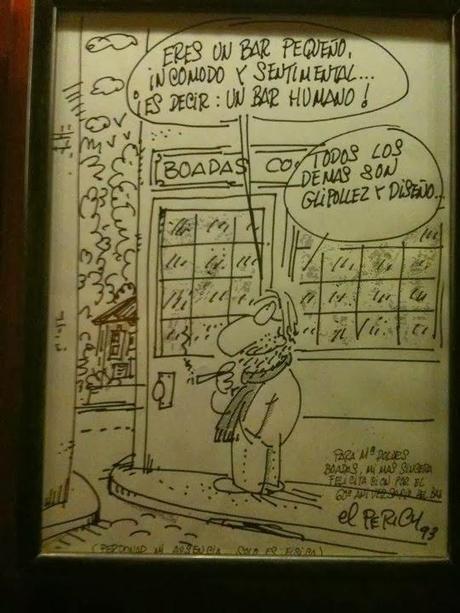 ERES UN BAR PEQUEÑO,
INCOMODO Y SENTIMENTAL...
¡ES DECIR: UN BAR HUMANO!
BOADAS CO
TODOS LOS
DEMAS SON
GILIPOLLEZ Y DISEÑO...
PARA Mª DOLORES
BOADAS, MI MAS SINCERA
FELICITACION POR EL
60º ANIVERSARIO DEL BAR
el PERICH 93
(PERDONAD MI AUSENCIA. SOLO ES FISICA)